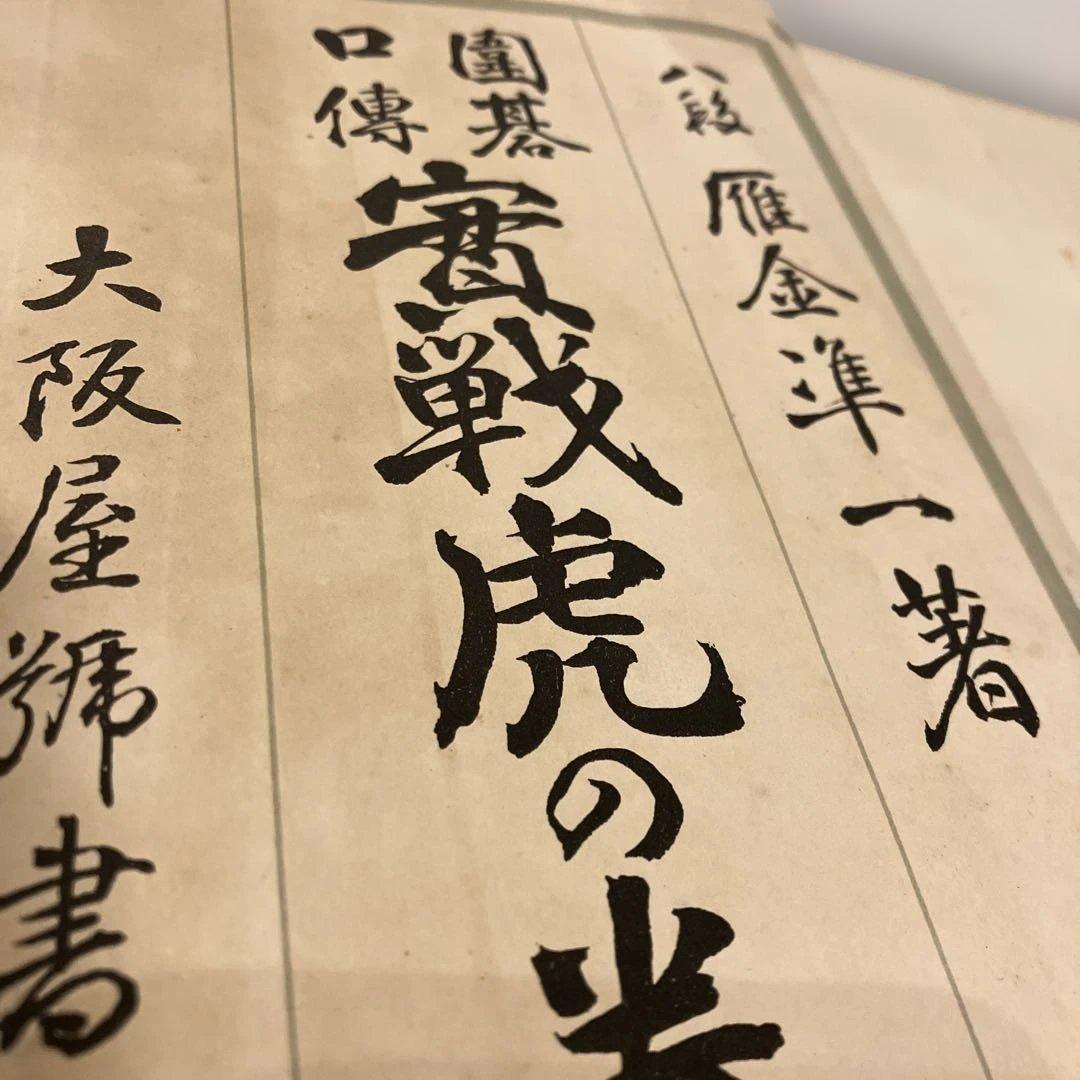 八段 雁金準一著
圍碁
口傳
實戦虎の巻
大阪屋號書